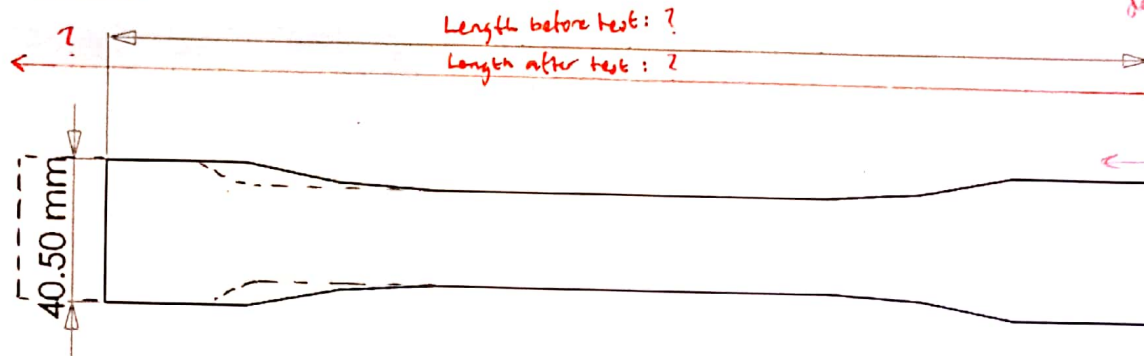 Length before test: ?
?
Length after test: ?
40.50 mm